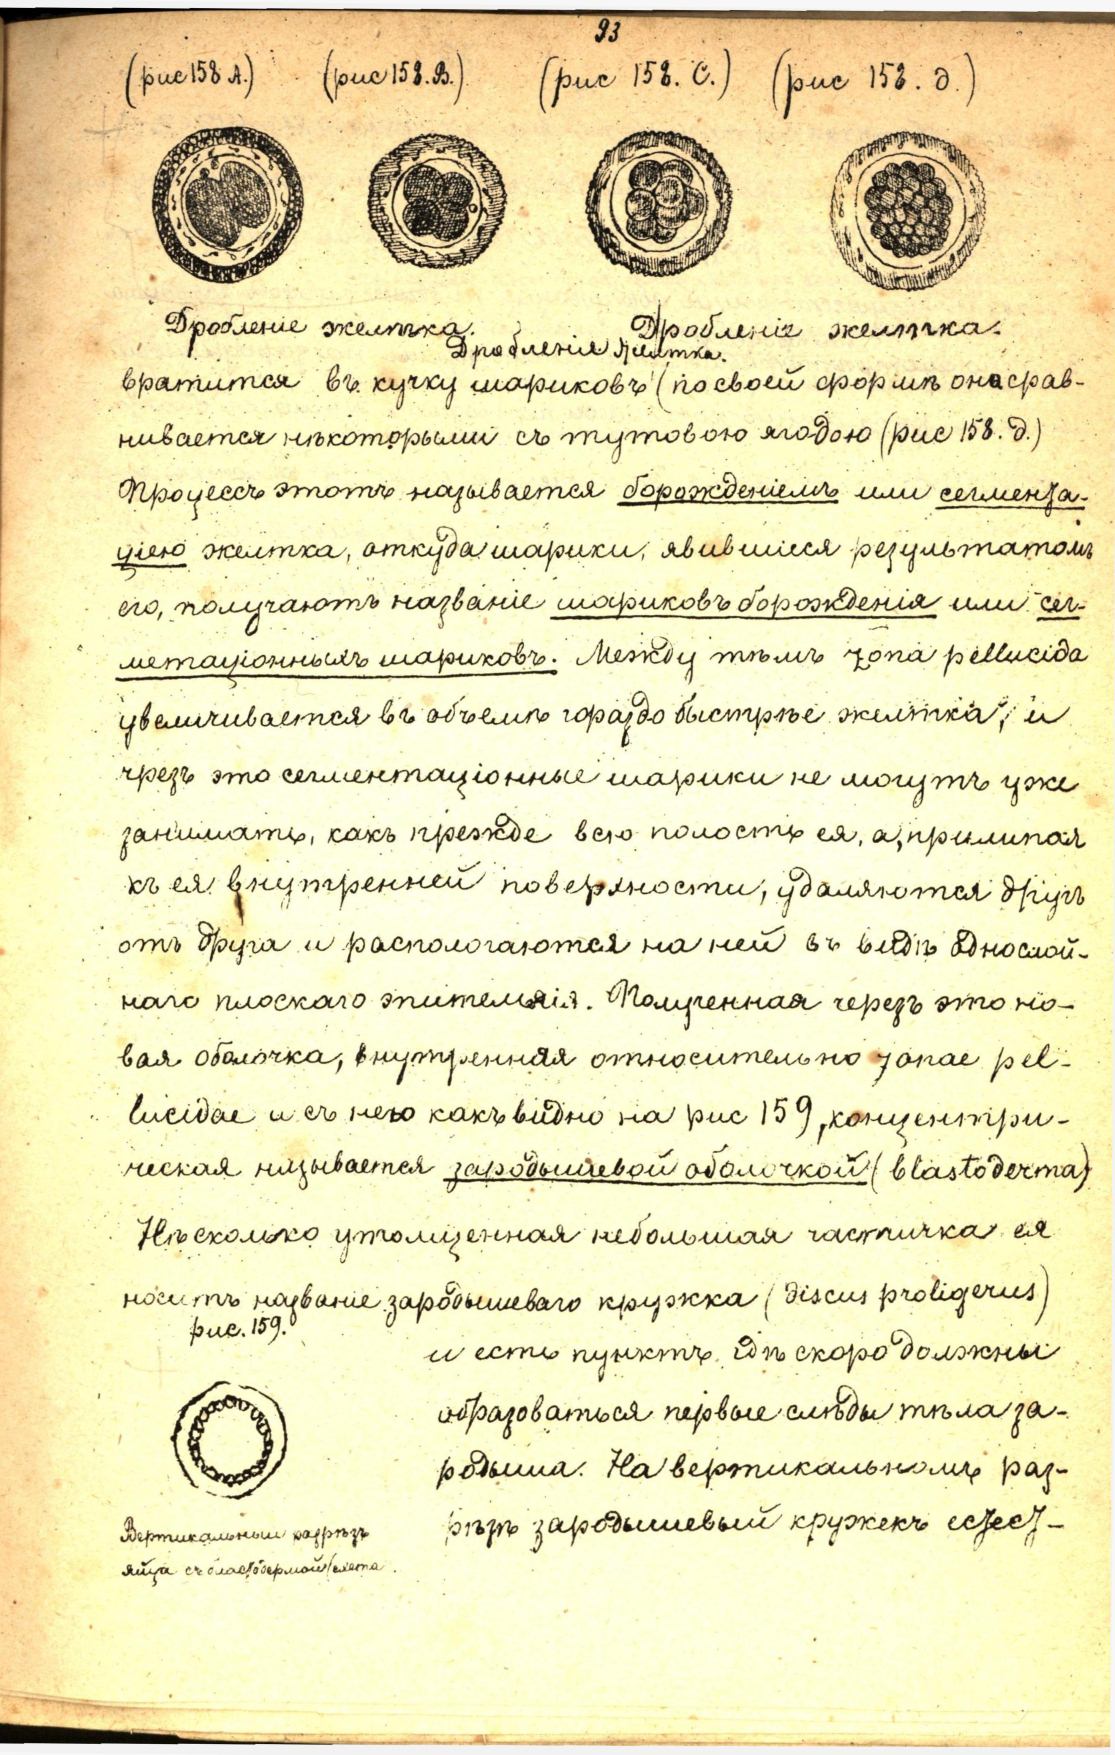 93
(рис 158 А.) (рис 158. В.) (рис 158. С.) (рис 158. д.)
Дробленіе желтка. Дробленіе желтка.
Дробленія желтка.
вратится въ кучку шариковъ (по своей формѣ она срав-
нивается нѣкоторыми съ тутовою ягодою (рис 158. д.)
Процессъ этотъ называется борожденіемъ или сегмента-
ціею желтка, откуда шарики, явившіеся результатомъ
его, получаютъ названіе шариковъ борожденія или сег-
метаціонныхъ шариковъ. Между тѣмъ zona pellucida
увеличивается въ объемѣ гораздо быстрѣе желтка, и
чрезъ это сегментаціонные шарики не могутъ уже
занимать, какъ прежде всю полость ея, а, прилипая
къ ея внутренней поверхности, удаляются другъ
отъ друга и распологаются на ней въ видѣ однослой-
наго плоскаго эпителія. Полученная черезъ это но-
вая оболочка, внутренняя относительно zonae pel-
lucidae и съ нею какъ видно на рис 159, концентри-
ческая называется зародышевой оболочкой (blastoderma)
Нѣсколько утолщенная небольшая частичка ея
носитъ названіе зародышеваго кружка (discus proligerus)
рис. 159.
и есть пунктъ гдѣ скоро должны
образоваться первые слѣды тѣла за-
родыша. На вертикальномъ раз-
рѣзѣ зародышевый кружекъ
Вертикальный разрѣзъ
яйца съ бластодермой